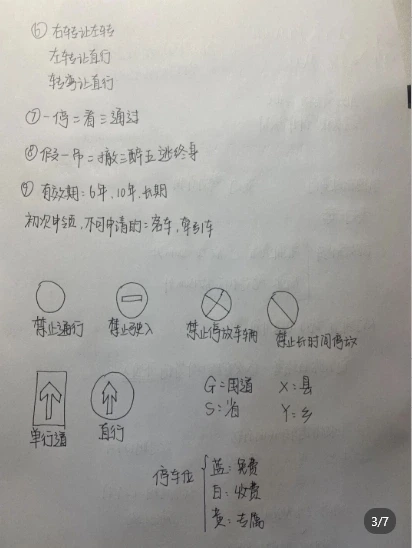 ⑥ 右转让左转
左转让直行
转弯让直行
⑦ 一停二看三通过
⑧ 假一吊二撤三醉五逃终身
⑨ 有效期:6年、10年、长期
初次申领,不可申请的:客车,牵引车
禁止通行 禁止驶入 禁止停放车辆 禁止长时间停放
单行道 直行
G:国道 X:县
S:省 Y:乡
停车位
蓝:免费
白:收费
黄:专属
3/7